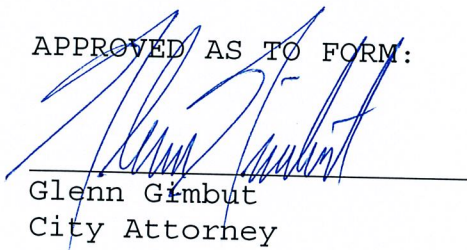 APPROVED AS TO FORM:
Glenn Gimbut
Glenn Gimbut
City Attorney